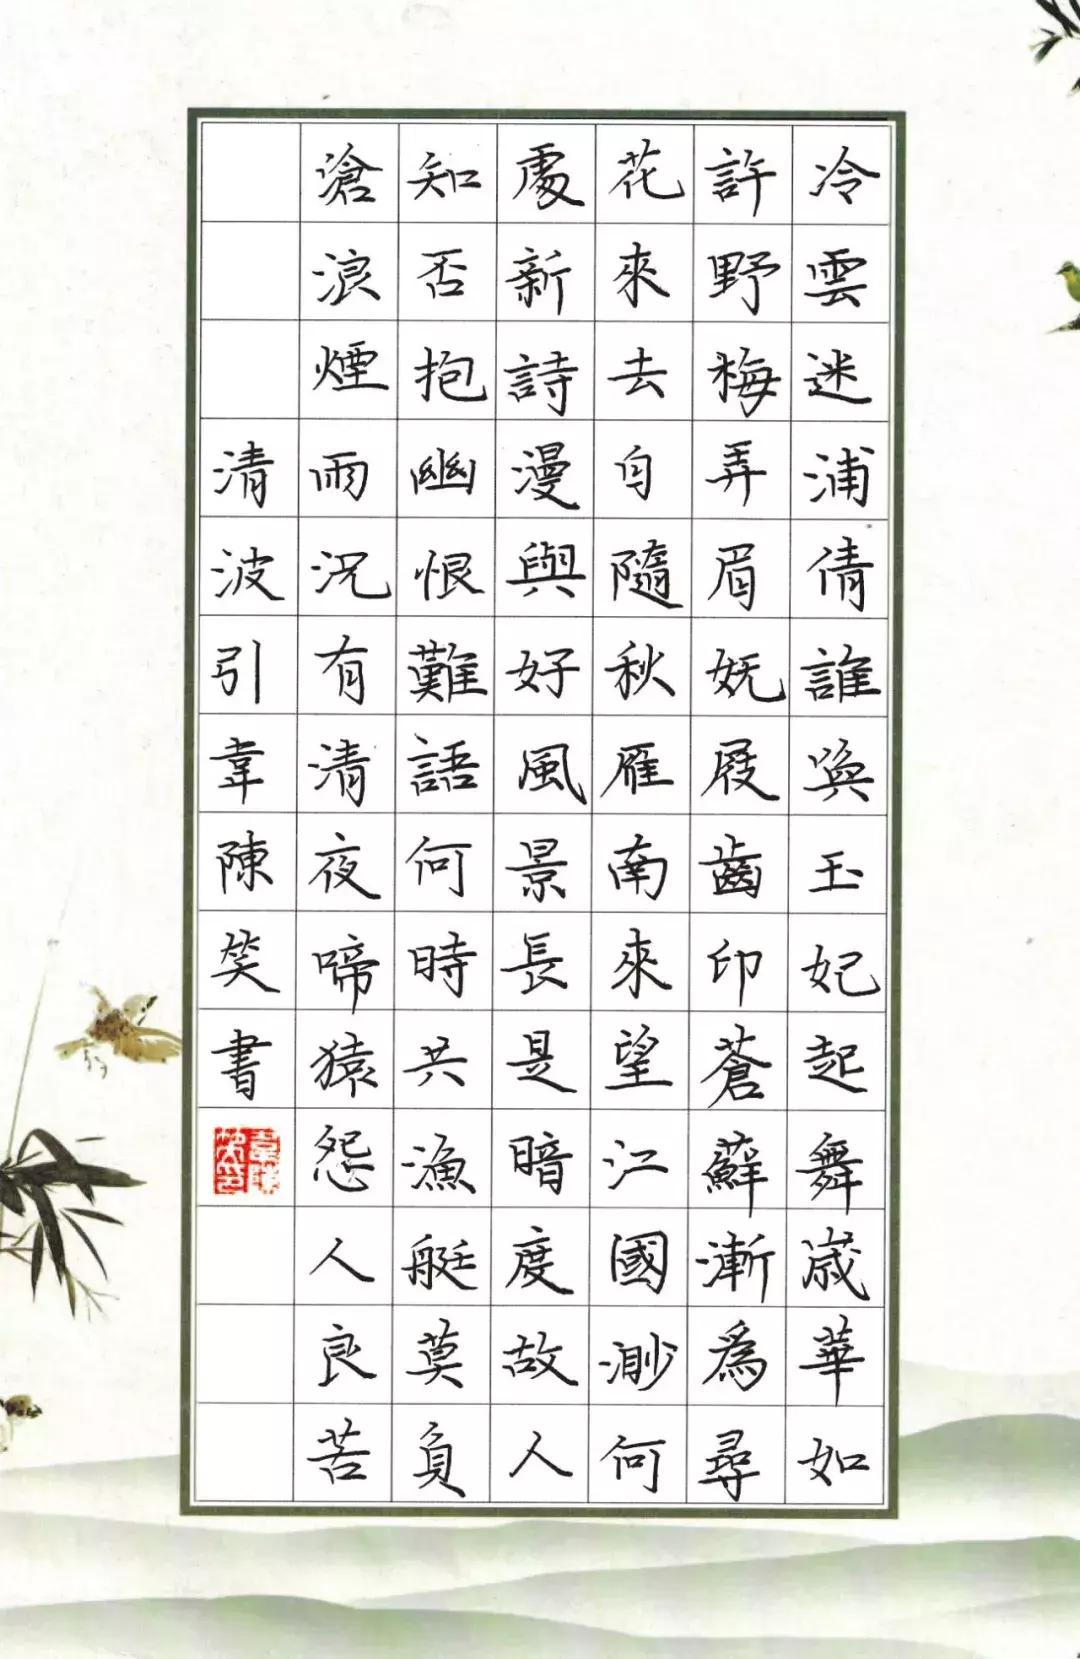 冷雲迷浦倩誰喚玉妃起舞歲華如
許野梅弄眉妩屐齒印蒼蘚漸爲尋
花來去自隨秋雁南來望江國渺何
處新詩漫與好風景長是暗度故人
知否抱幽恨難語何時共漁艇莫負
滄浪煙雨況有清夜啼猿怨人良苦
清波引韋陳笑書
韋陳笑印